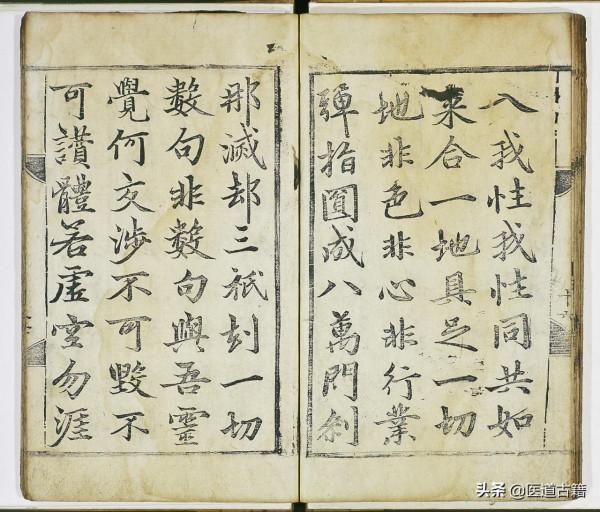 入我性我性同共如
来合一地具足一切
地非色非心非行業
彈指圓成八萬門刹
那滅却三祇刧一切
數句非數句與吾靈
覺何交涉不可毀不
可讚體若虛空勿涯
头条 @医道古籍